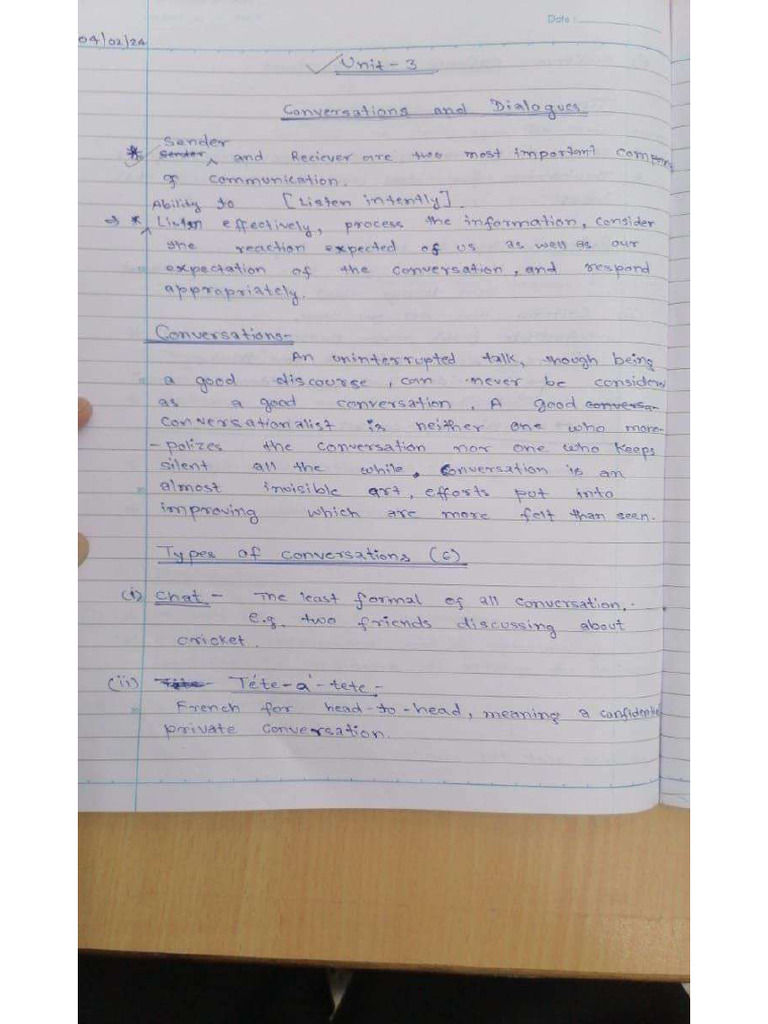 Date :
04/02/24
Unit - 3
Conversations and Dialogues
Sender
* Sender and Reciever are two most important compon
of communication.
Ability to [Listen intently].
→ * Listen effectively, process the information, consider
the reaction expected of us as well as our
expectation of the conversation, and respond
appropriately.
Conversations-
An uninterrupted talk, though being
a good discourse, can never be consider
as a good conversation. A good conversa-
conversationalist is neither one who mono-
-polizes the conversation nor one who keeps
silent all the while. Conversation is an
almost invisible art, efforts put into
improving which are more felt than seen.
Types of conversations (6)
(i) Chat - The least formal of all conversation.
e.g. two friends discussing about
cricket.
(ii) Téte-a'-tete-
French for head-to-head, meaning a confidentia
private conversation.